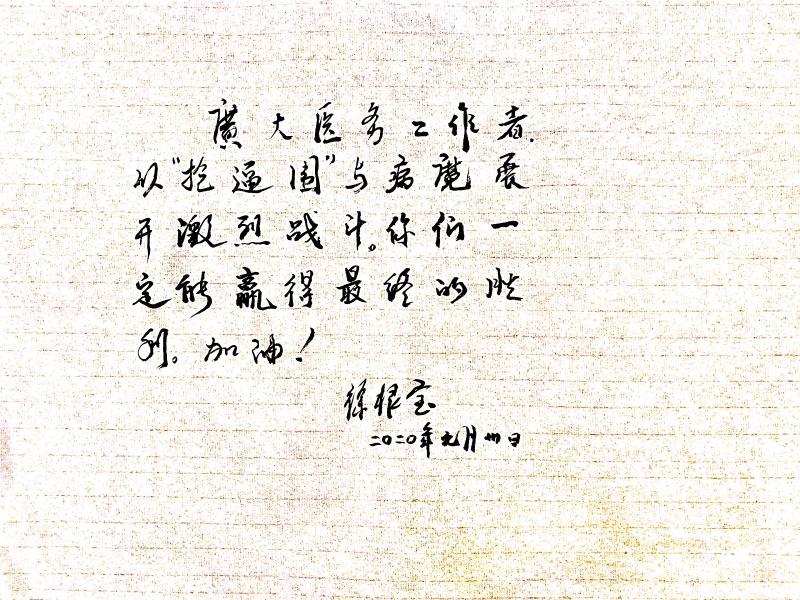 廣大医务工作者.
以“抢逼围”与病魔展
开激烈战斗。你们一
定能赢得最终的胜
利。加油！
徐根宝
二〇二〇年元月卅日